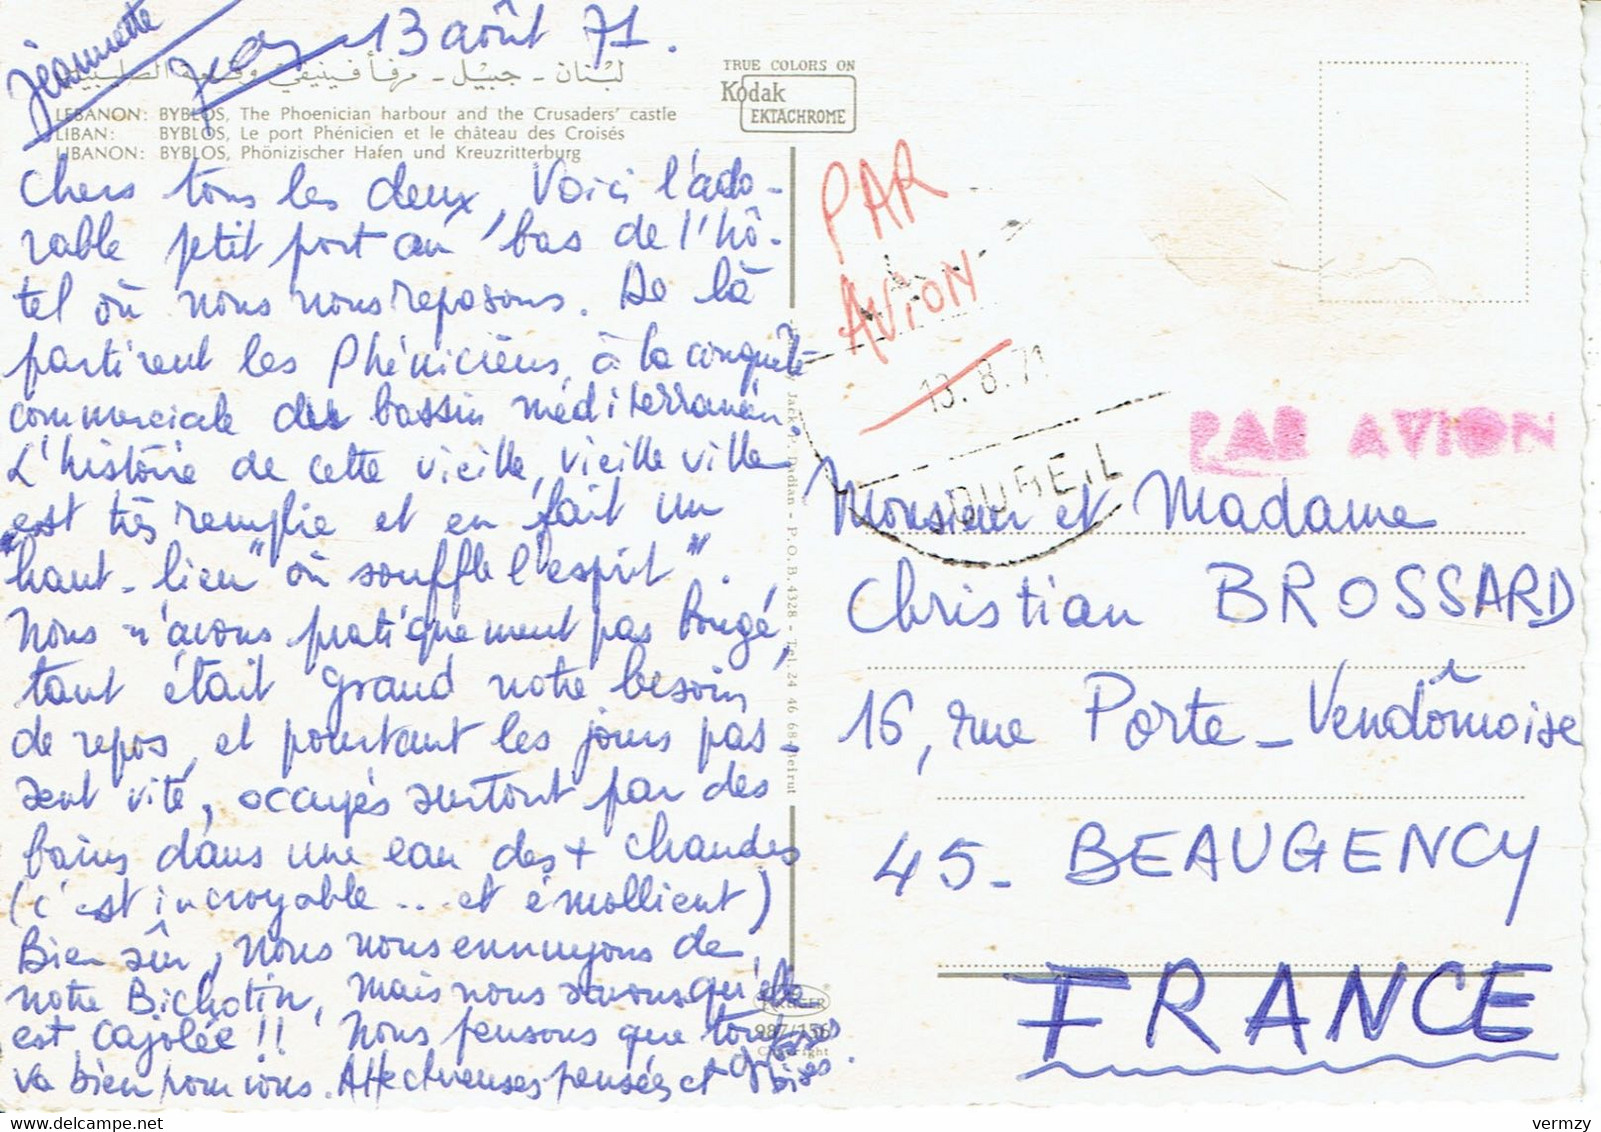 Jeannette
Jean 13 août 71.
لبنان - جبيل - مرفأ فينيقي وقلعة الصليبيين
LEBANON: BYBLOS, The Phoenician harbour and the Crusaders' castle
LIBAN: BYBLOS, Le port Phénicien et le château des Croisés
LIBANON: BYBLOS, Phönizischer Hafen und Kreuzritterburg
TRUE COLORS ON
Kodak
EKTACHROME
Chers tous les deux, Voici l'ado-
rable petit port au bas de l'hô-
tel où nous nous reposons. De là
partirent les Phéniciens, à la conquête
commerciale du bassin méditerranéen.
L'histoire de cette vieille, vieille ville
est très remplie et en fait un
"haut-lieu "où souffle l'esprit".
Nous n'avons pratiquement pas bougé,
tant était grand notre besoin
de repos, et pourtant les jours pas-
sent vite, occupés surtout par des
bains dans une eau des + chaudes
(c'est incroyable... et émollient)
Bien sûr, nous nous ennuyons de
notre Bichotin, mais nous savons qu'elle
est cajolée!! Nous pensons que tout
va bien pour vous. Affectueuses pensées et grosses bises.
P.O.B. 4328 - Tel. 24 46 68 - Beirut
KRUGER
987/156
Copyright
PAR
AVION
13. 8. 71
JOUBEIL
PAR AVION
Monsieur et Madame
Christian BROSSARD
16, rue Porte-Vendômoise
45- BEAUGENCY
FRANCE
vermzy